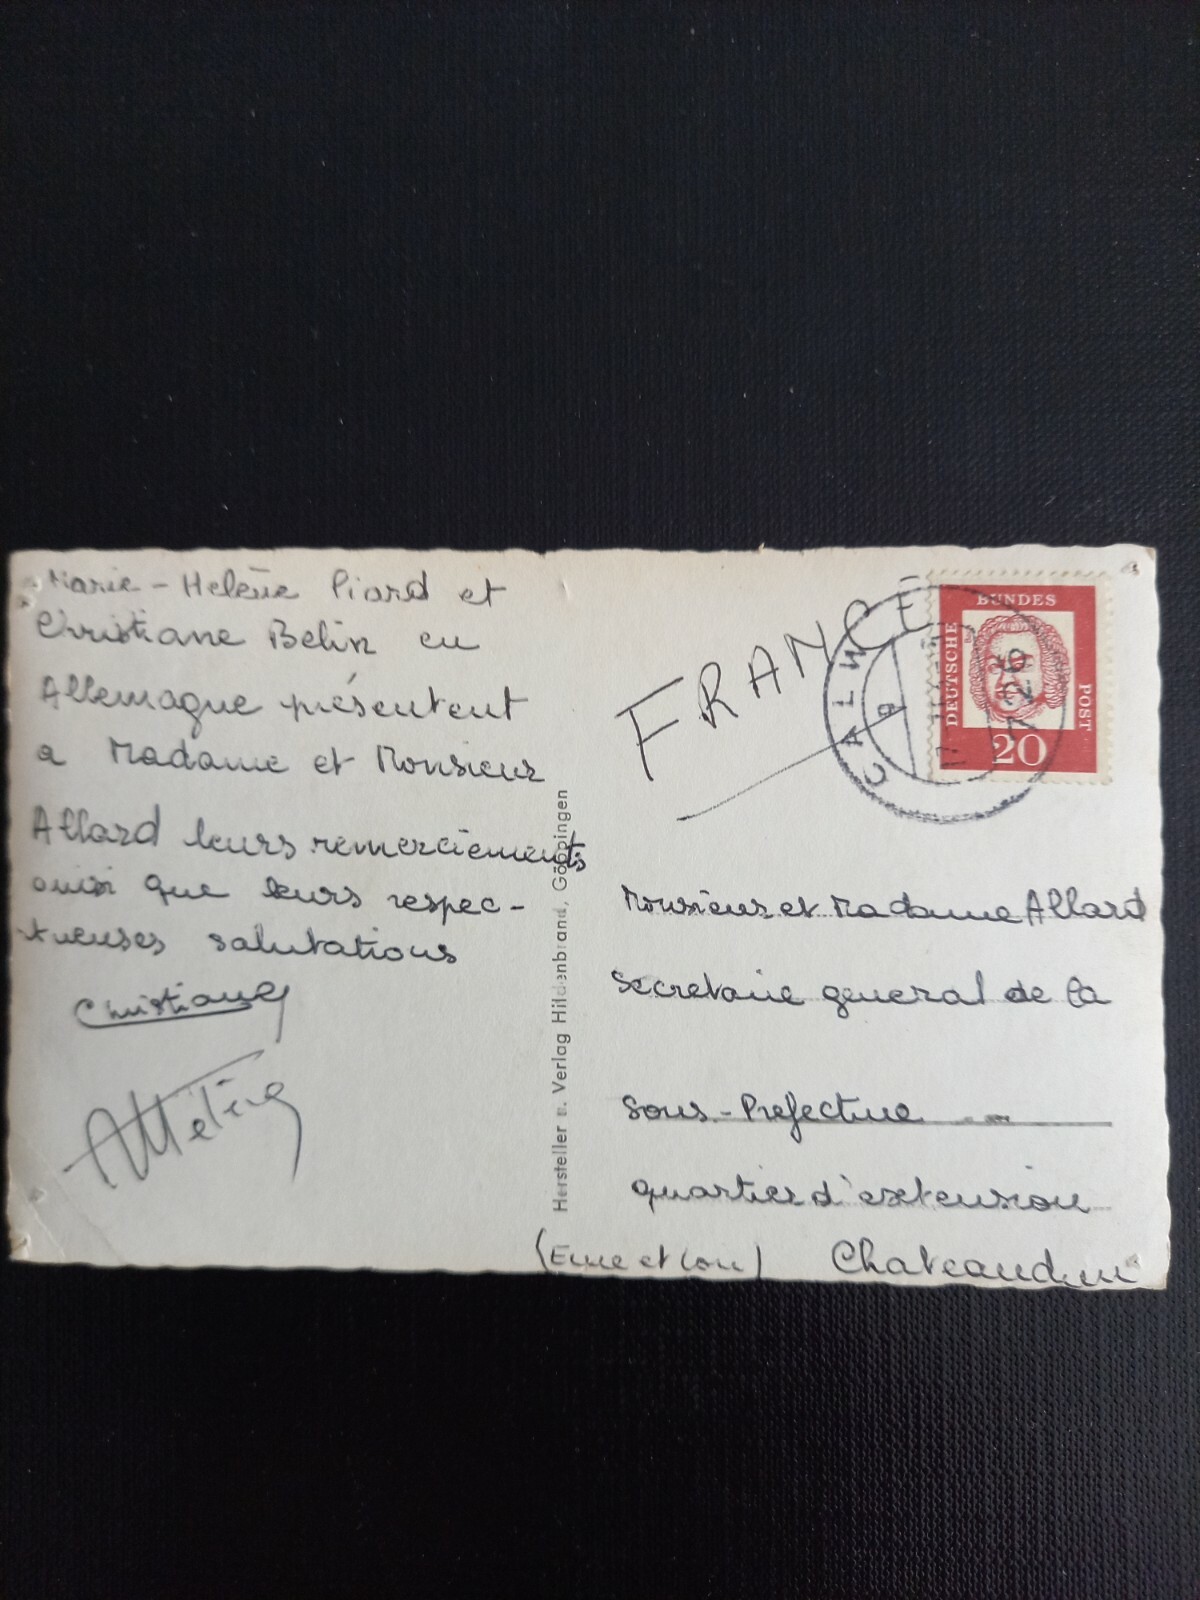 Marie-Helène Piard et
Christiane Belin en
Allemagne présentent
a Madame et Monsieur
Allard leurs remerciements
ainsi que leurs respec-
tueuses salutations
Christiane
Hersteller u. Verlag Hildenbrand, Göppingen
FRANCE
CALW
a
726
DEUTSCHE
BUNDES
POST
20
Monsieur et Madame Allard
Secretaire general de la
Sous-Prefecture
quartier d'extension
(Eure et Loir) Chateaudun